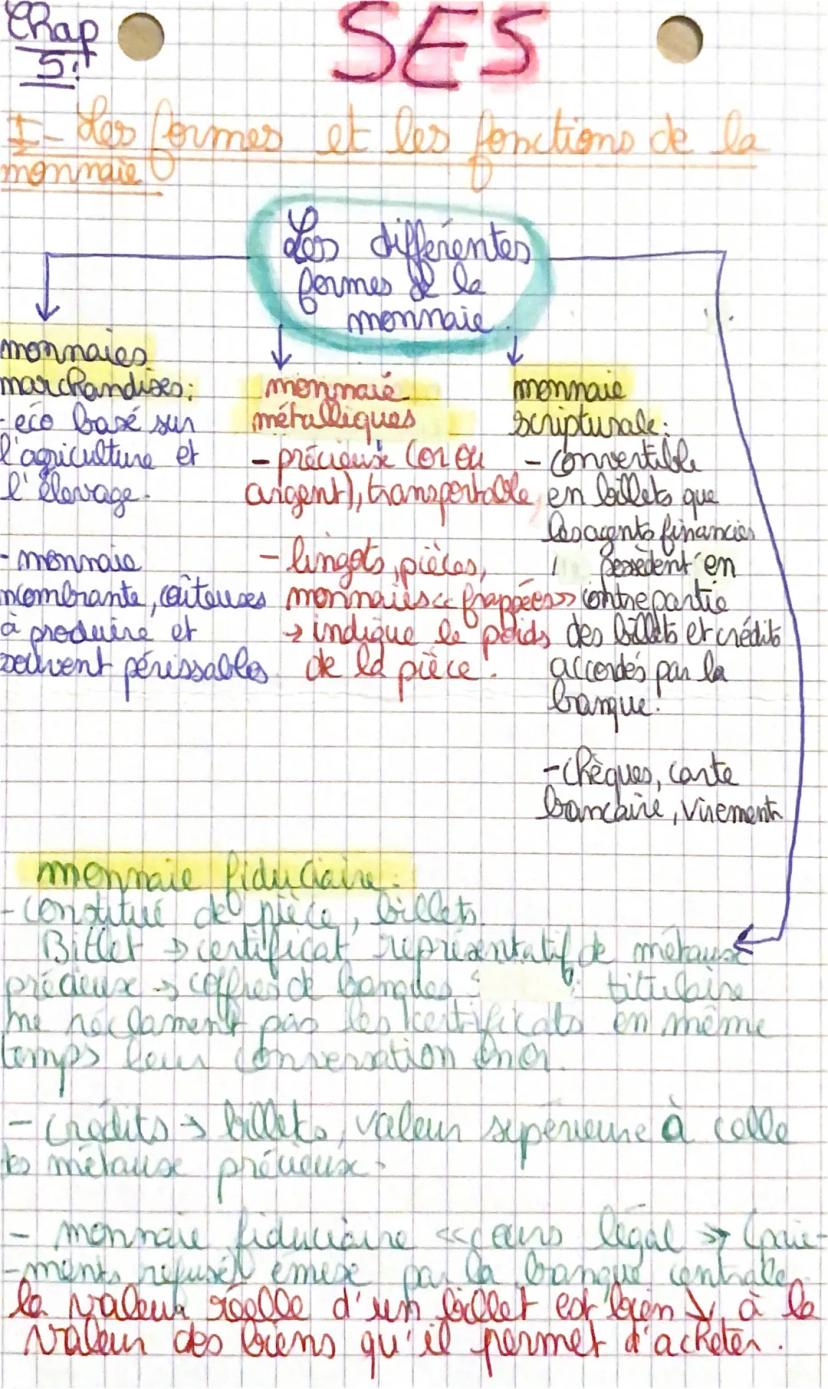 Chap
5:
SES
I- Les formes et les fonctions de la
monnaie
Les différentes
formes de la
monnaie.
monnaies
marchandises:
- éco basé sur
l'agriculture et
l'élevage.
- monnaie
encombrante, coûteuses
à produire et
souvent périssables
monnaie
métalliques
- précieuse (or ou
argent), transportable
- lingots, pièces,
monnaies << frappées >>
→ indique le poids
de la pièce.
monnaie
scripturale:
- convertible
en billets que
les agents financiers
possèdent en
contrepartie
des billets et crédits
accordés par la
banque.
- chèques, carte
bancaire, virement
monnaie fiduciaire:
- constitué de pièce, billets.
Billet → certificat représentatif de métaux
précieux → coffres de banques titulaire
ne réclament pas les certificats en même
temps leur conversation en or.
- Crédits → billets, valeur supérieure à celle
des métaux précieux.
- monnaie fiduciaire << cours légal >> (paie-
-ments refusé) émise par la banque centrale.
la valeur réelle d'un billet est bien ↘ à la
valeur des biens qu'il permet d'acheter.